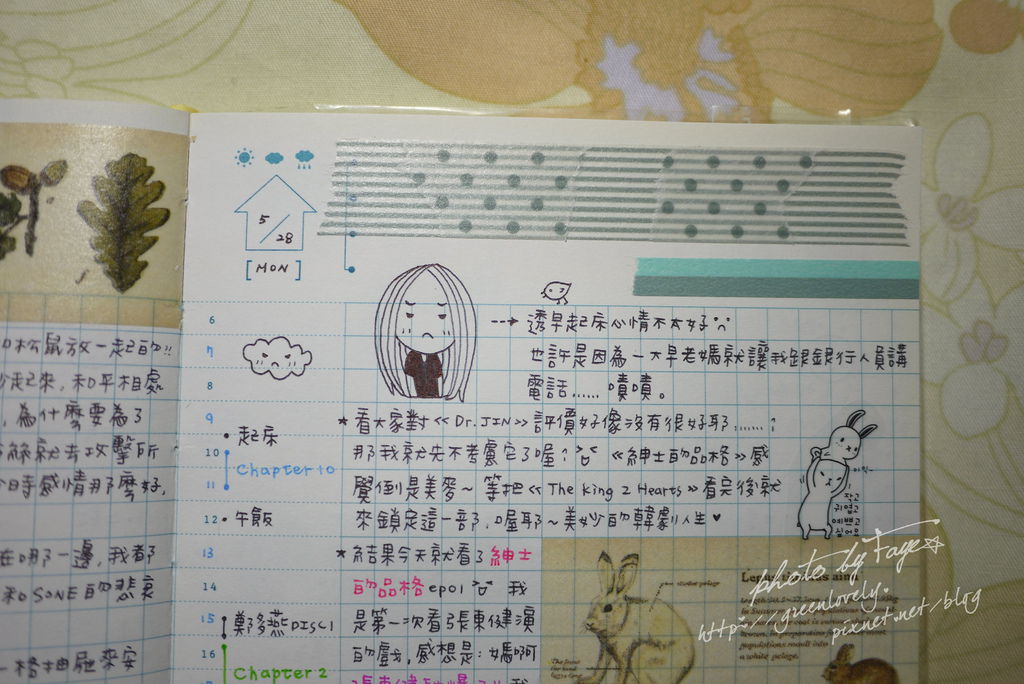 和松鼠放一起的!!
起來,和平相處
,為什麼要為了
絲就去攻擊所
時感情那麼好,
在哪一邊,我看了
和SONE的悲哀
一格抽屜來安
5/28
[MON]
6
7
8
9
10
11
12
13
14
15
16
• 起床
Chapter 10
• 午飯
• 鄭多燕DISC1
Chapter 2
--→ 透早起床心情不太好
也許是因為一大早老媽就讓我跟銀行人員講
電話...... 嘖嘖。
★ 看大家對《Dr. JIN》評價好像沒有很好耶......?
那我就先不考慮它了喔? 《紳士的品格》感
覺倒是美麥~ 等把《The King 2 Hearts》看完後就
來鎖定這一部,喔耶~ 美妙的韓劇人生♥
★ 結果今天就看了紳士
的品格ep01 我
是第一次看張東健演
的戲,感想是:媽啊
작고
귀엽고
예쁘고
싶어요
photo by Faye☆
http://greenlovely.
pixnet.net/blog
populations moult into
a white pelage.